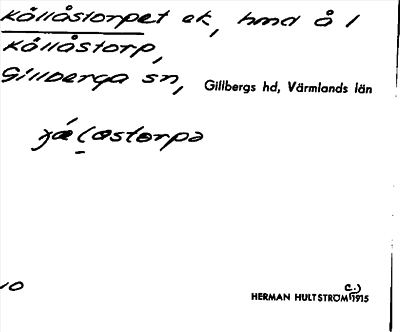 Kållåstorpet ek, hmd å 1
Kållåstorp,
Gillberga sn, Gillbergs hd, Värmlands län
10
HERMAN HULTSTRÖM (c.) 1915